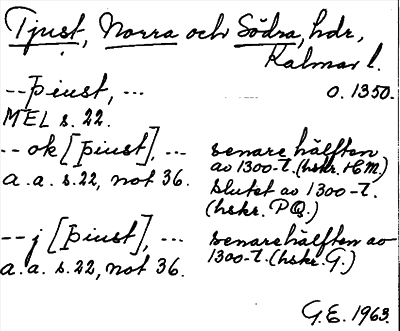 Tjust, Norra och Södra, hdr,
Kalmar l.
--þiust, ... o. 1350.
MEL s. 22.
--ok [þiust], ... senare hälften
a.a. s. 22, not 36. av 1300-t. (hskr. H M.)
slutet av 1300-t.
(hskr. PQ.)
--j [þiust], ... senare hälften av
a.a. s. 22, not 36. 1300-t. (hskr. G.)
G.E. 1963.